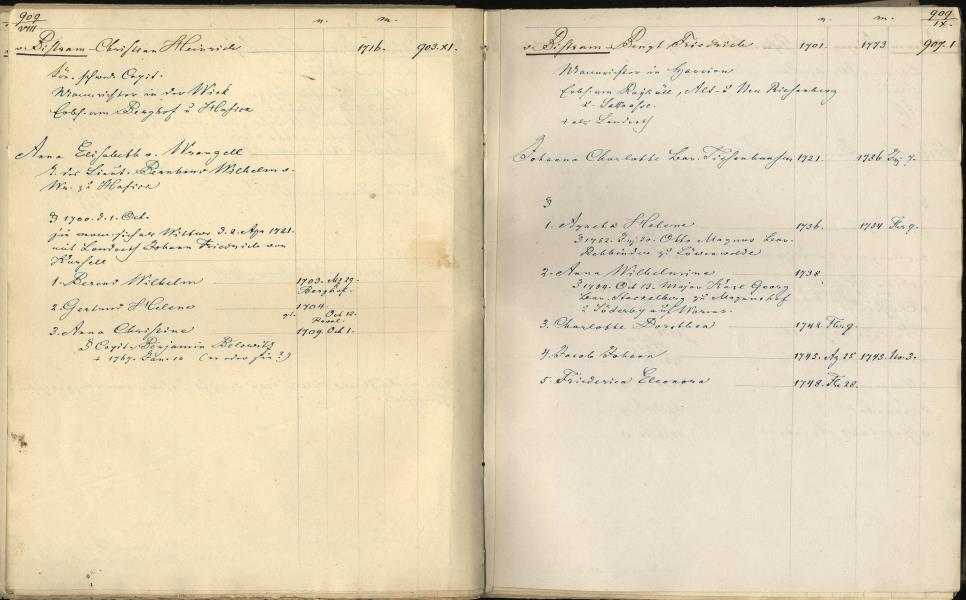 909
VIII
n. m.
v. Bistram Christian Heinrich 1716. 903.XI.
Capit.
Mannrichter in der Wiek
Erbh. von Berghof u Hasick
Anna Elisabeth v. Wrangell
T. des Lieut. Bernhard Wilhelm v.
Wr. zu Hasick
1700. d. 1. Oct.
Wittwe d. 2 Apr 1721.
mit Landrath Johann Friedrich von
Kursell
1. Berend Wilhelm 1703. Ag 29.
Berghof.
2. Gertrud Helene 1704.
gt. Oct 12.
Reval.
3. Anna Christine 1709. Oct 1.
Capit. Benjamin
+ 1767. Jan. 10
909
IX.
n. m.
v. Bistram Bengt Friedrich 1701. 1773 907.1
Mannrichter in Harrien
Erbh. von Rayküll, Alt- u Neu Riesenberg
u.
+ als Landrath
Johanna Charlotte Bar. Tiesenhausen 1721. 1786 7.
1. Agneta Helene 1736. 1754 9.
1752. 30. Otto Magnus Bar.
Rehbinder zu Löwenwolde
2. Anna Wilhelmine 1738
1759. Oct 13. Major Karl Georg
Bar. Stackelberg zu
u Söderby auf Worms.
3. Charlotte Dorothea 1742. Fbr 9.
4. Jacob Johann 1745. Ag 25 1745. No. 3.
5. Friederica Eleonora 1748. Fbr 28.